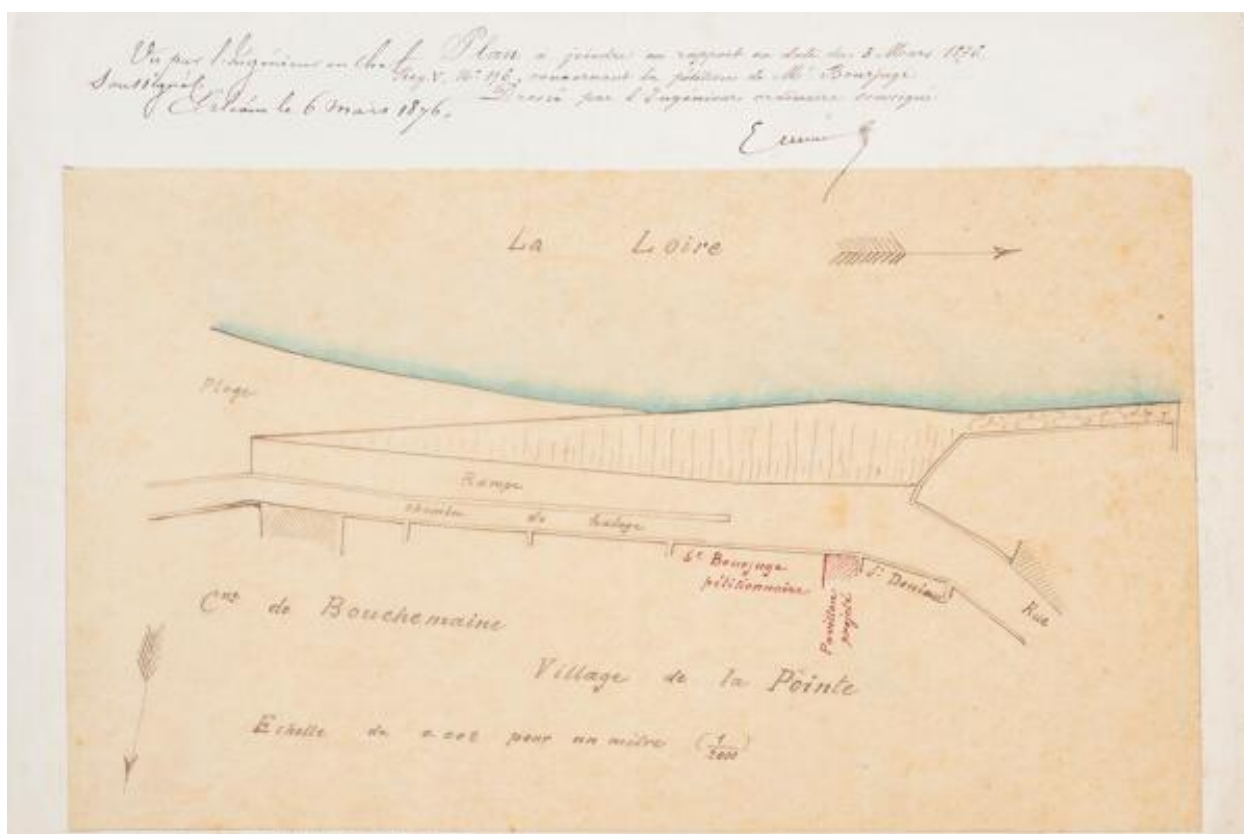 Vu par l'Ingénieur en chef
Soussigné
le 6 Mars 1876.
Plan à joindre au rapport en date du 3 Mars 1876
Reg. V. N° 196, concernant la pétition de Mr Bourjuge
Dressé par l'Ingénieur ordinaire soussigné
La Loire
Plage
Rampe
chemin de halage
Sr Bourjuge
pétitionnaire
Pavillon
projeté
Sr
Rue
Cne de Bouchemaine
Village de la Pointe
Echelle de 0.002 pour un mètre (1/2000)